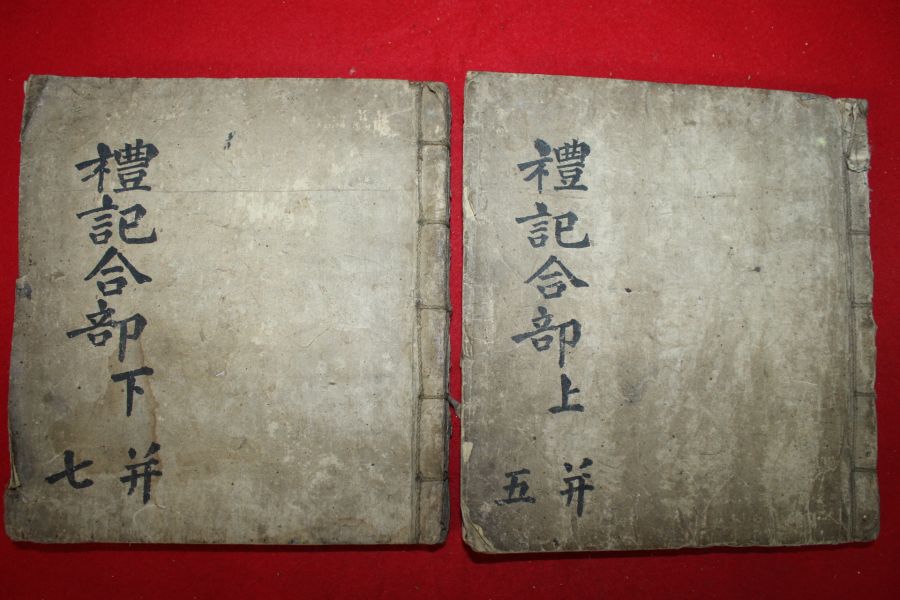 禮記合部上
并
五
禮記合部下
并
七